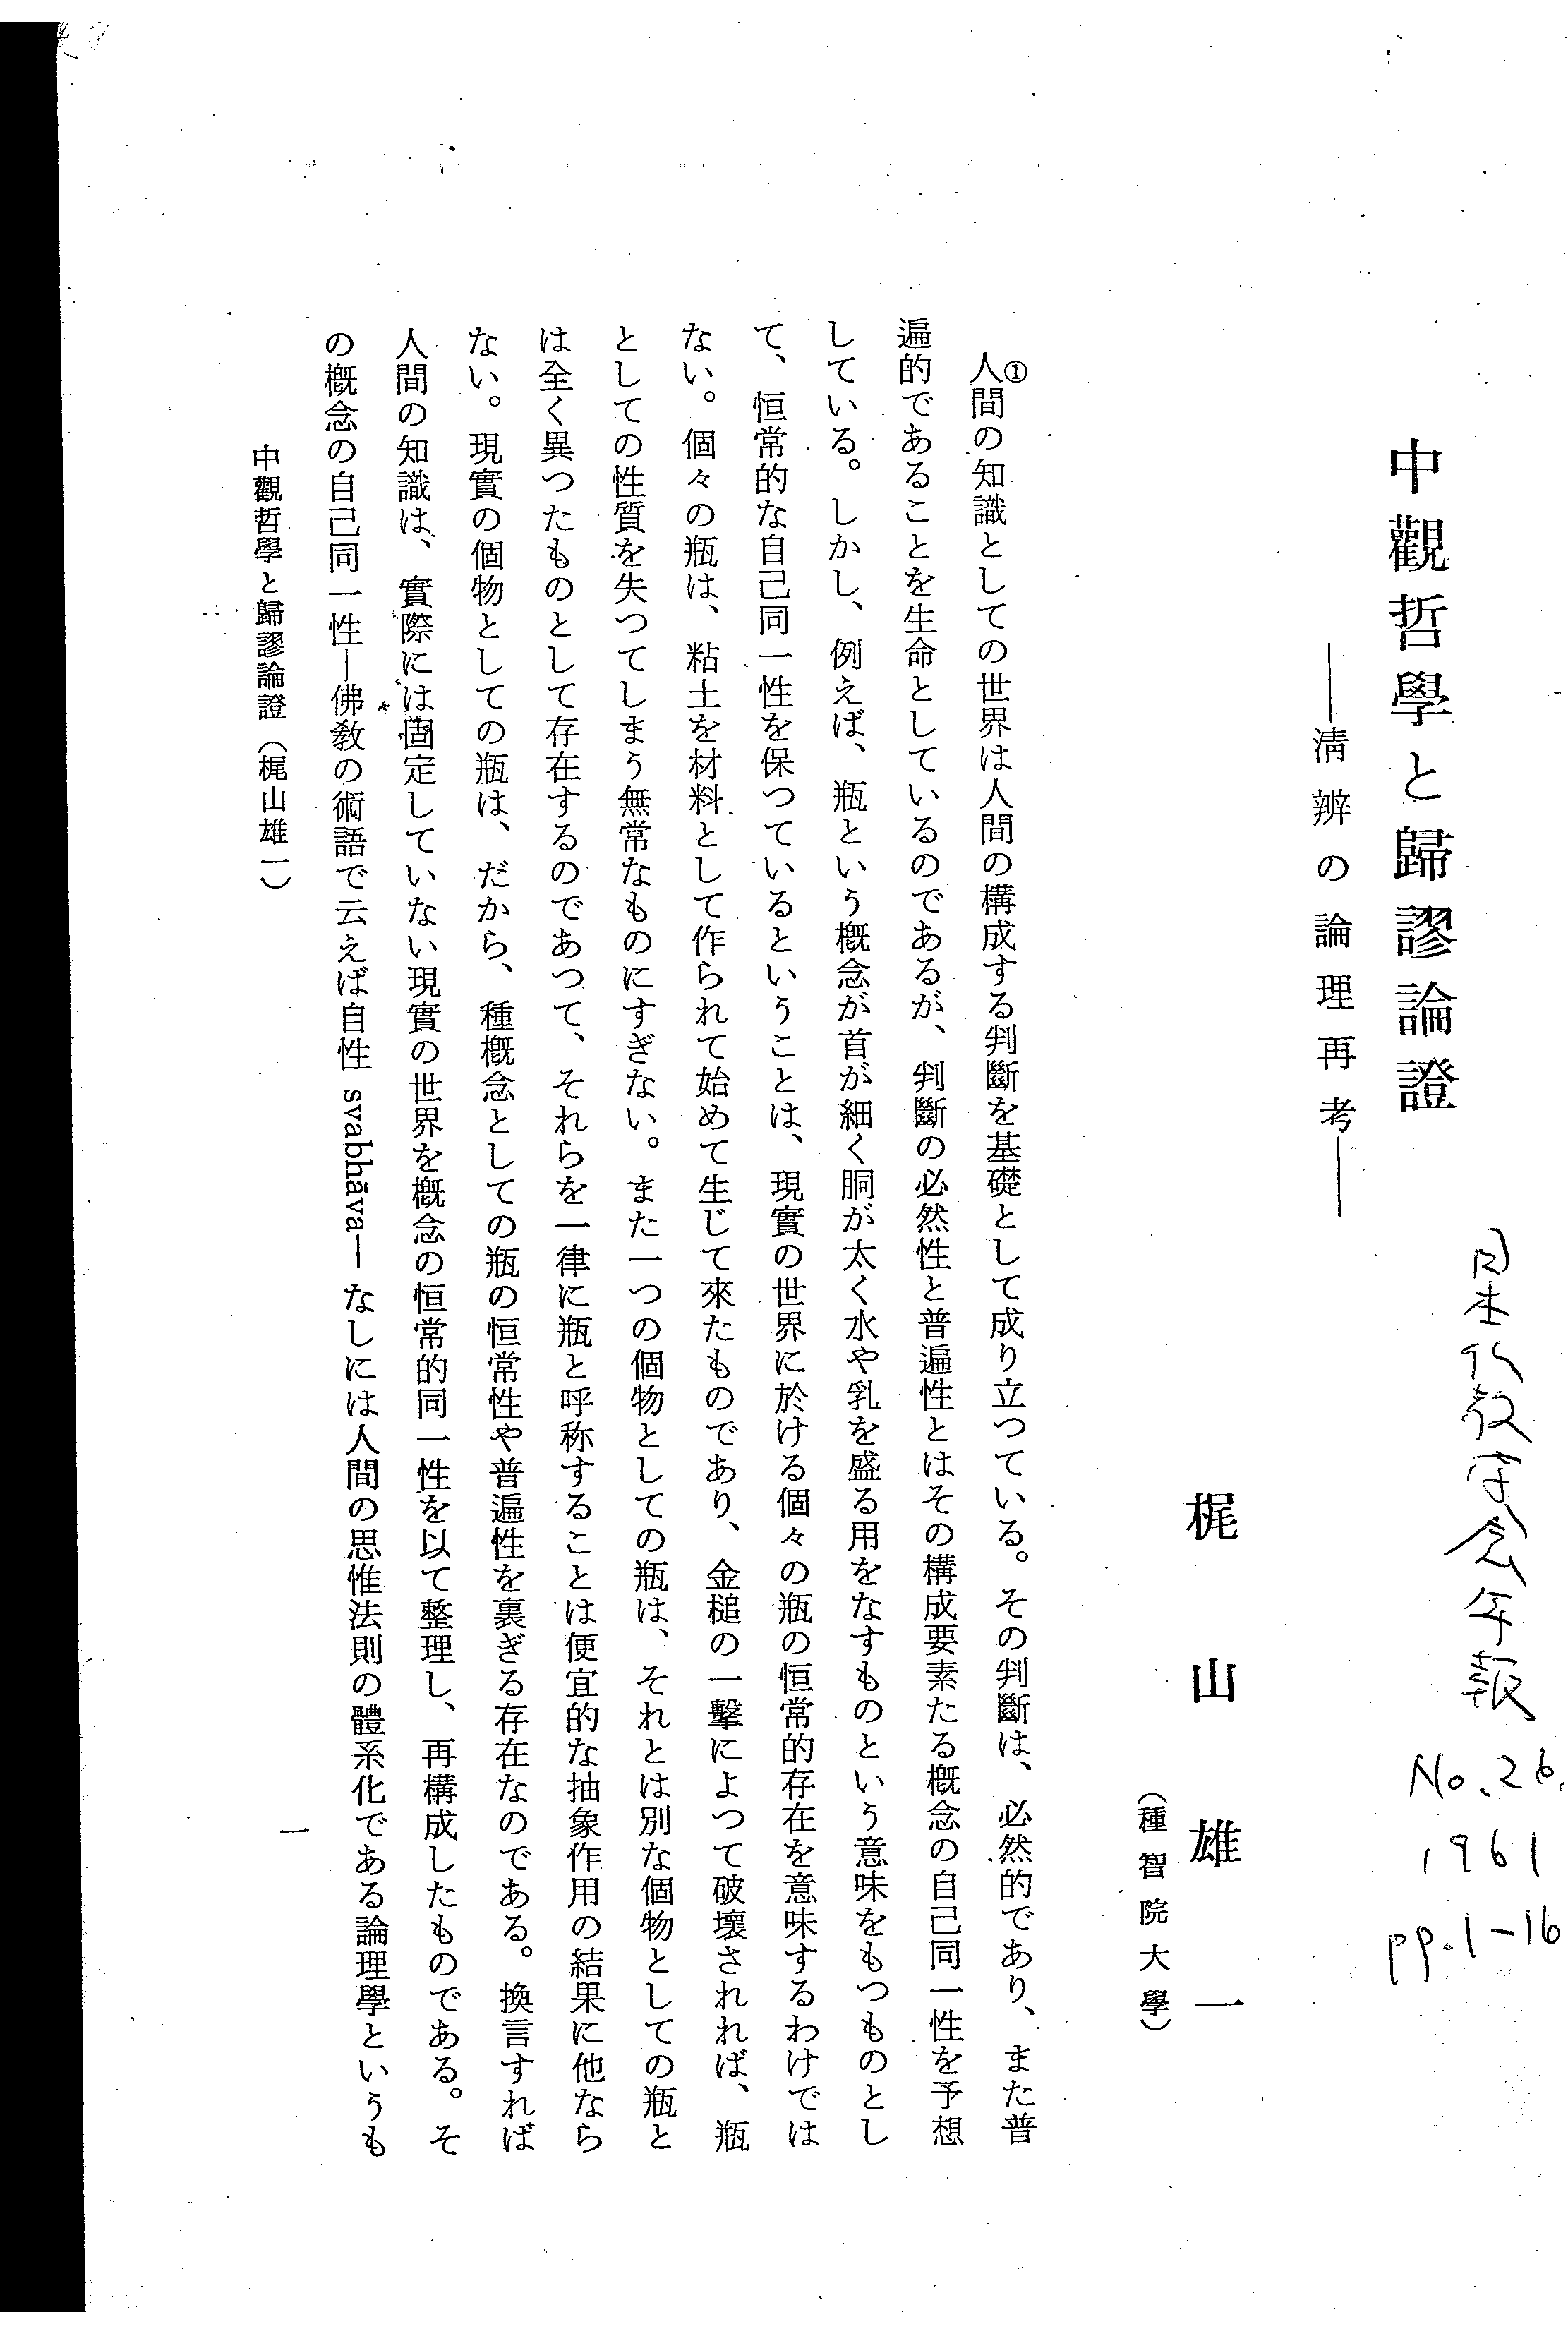 中觀哲學と歸謬論證
――淸辨の論理再考――
日本仏教学会年報
No. 26,
1961
pp. 1-16
梶山雄一
（種智院大學）
①人間の知識としての世界は人間の構成する判斷を基礎として成り立つている。その判斷は、必然的であり、また普
遍的であることを生命としているのであるが、判斷の必然性と普遍性とはその構成要素たる概念の自己同一性を予想
している。しかし、例えば、瓶という概念が首が細く胴が太く水や乳を盛る用をなすものという意味をもつものとし
て、恒常的な自己同一性を保つているということは、現實の世界に於ける個々の瓶の恒常的存在を意味するわけでは
ない。個々の瓶は、粘土を材料として作られて始めて生じて來たものであり、金槌の一擊によつて破壞されれば、瓶
としての性質を失つてしまう無常なものにすぎない。また一つの個物としての瓶は、それとは別な個物としての瓶と
は全く異つたものとして存在するのであつて、それらを一律に瓶と呼称することは便宜的な抽象作用の結果に他なら
ない。現實の個物としての瓶は、だから、種概念としての瓶の恒常性や普遍性を裏ぎる存在なのである。換言すれば
人間の知識は、實際には固定していない現實の世界を概念の恒常的同一性を以て整理し、再構成したものである。そ
の概念の自己同一性―佛敎の術語で云えば自性 svabhāva― なしには人間の思惟法則の體系化である論理學というも
中觀哲學と歸謬論證（梶山雄一）
一